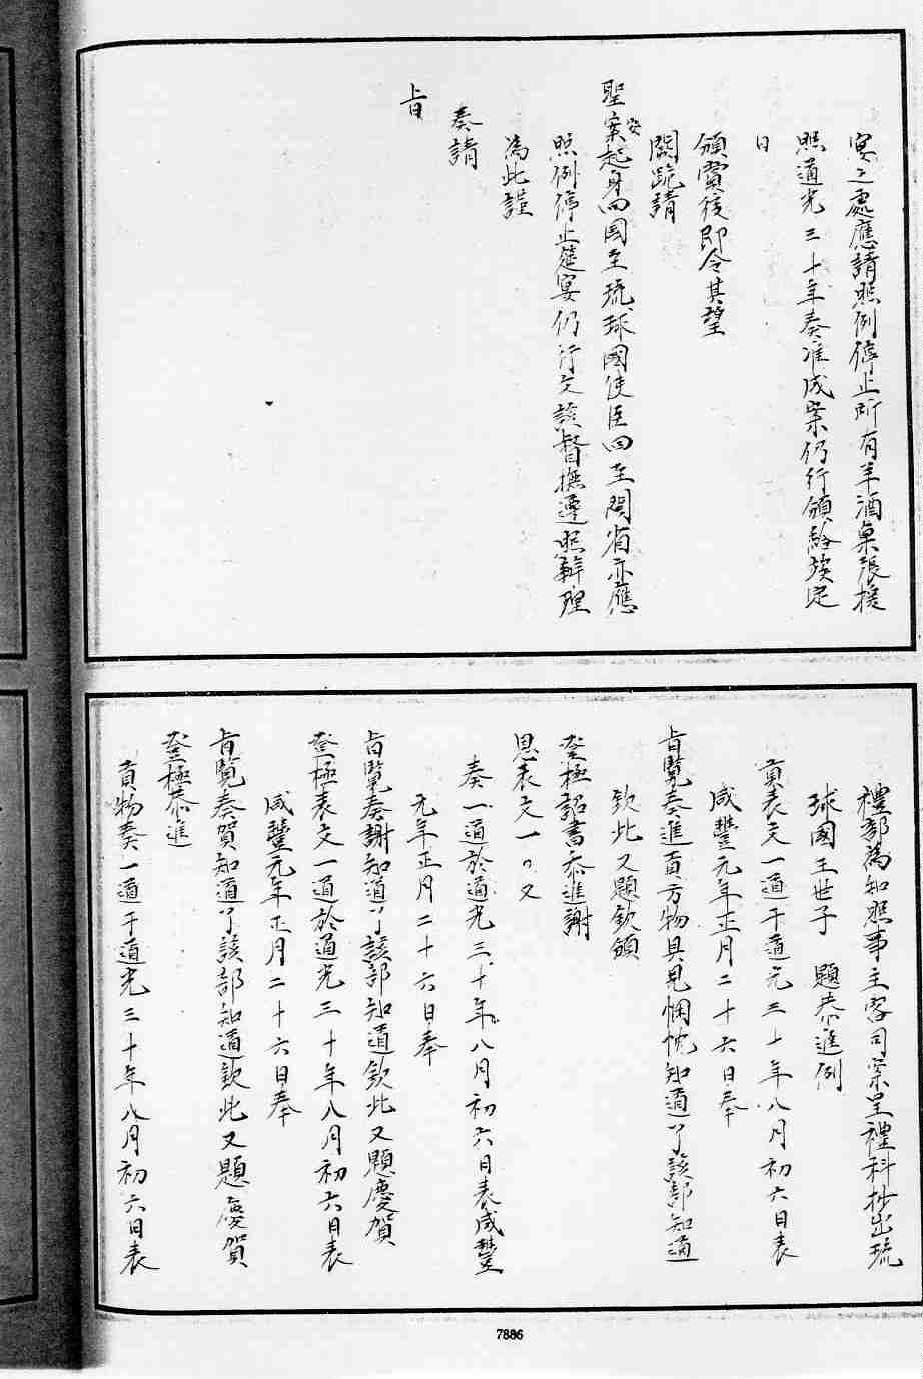 宴之處應請照例停止所有羊酒桌張援
照道光三十年奏准成案仍行頒給擬定
日
頒賞後即令其望
闕跪請
聖安起身回國至琉球國使臣回至閩省亦應
照例停止筵宴仍行文該督撫遵照辦理
為此謹
奏請
旨
禮部為知照事主客司案呈禮科抄出琉
球國王世子 題恭進例
貢表文一道于道光三十年八月初六日表
咸豐元年正月二十六日奉
旨覽奏進貢方物具見悃忱知道了該部知道
欽此又題欽頒
登極詔書恭進謝
恩表文一 又
奏一道於道光三十年八月初六日表咸豐
元年正月二十六日奉
旨覽奏謝知道了該部知道欽此又題慶賀
登極表文一道於道光三十年八月初六日表
咸豐元年正月二十六日奉
旨覽奏賀知道了該部知道欽此又題慶賀
登極恭進
貢物奏一道于道光三十年八月初六日表
7886